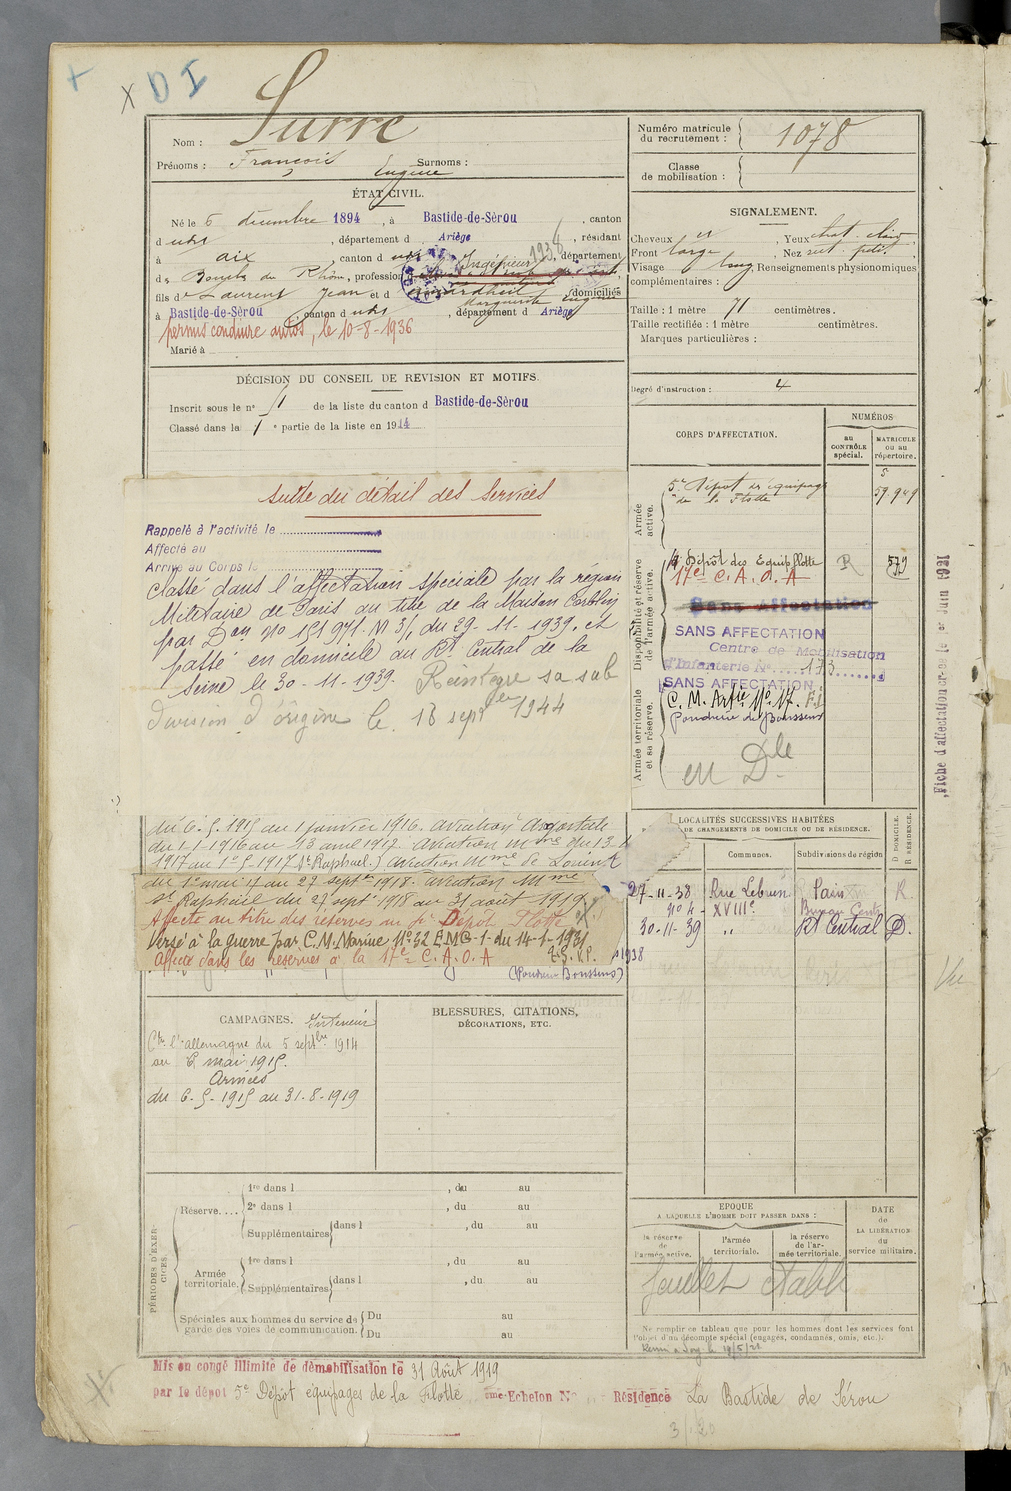 X D I
Surre
Nom :
Prénoms : François Eugène Surnoms :
ÉTAT CIVIL.
Né le 5 décembre 1894, à Bastide-de-Sérou, canton
d udt, département d Ariège, résidant
à aix, canton d , Ingénieur 1938 département
des Bouches du Rhône, profession
fils d Laurent Jean et d Marguerite Eugénie, domiciliés
à Bastide-de-Sérou, canton d udt, département d Ariège
permis conduire autos, le 10-8-1936
Marié à
DÉCISION DU CONSEIL DE REVISION ET MOTIFS.
Inscrit sous le n° 51 de la liste du canton d Bastide-de-Sérou
Classé dans le 1 e partie de la liste en 1914
suite du détail des services
Rappelé à l'activité le
Affecté au
Arrivé au Corps le
Classé dans l'affectation spéciale par la région
Militaire de Paris au titre de la Maison Corblin
par Don No 151 971. M 3/, du 29-11-1939, et
passé en domicile au Rt Central de la
Seine le 30-11-1939. Réintègre sa sub
division d'origine le 18 sept 1944
du 6-5-1915 au 1 janvier 1916. aviation
du 1-1-1916 au 13 avril 1917. aviation mme du 13-4
1917 au 1er-5-1917 St Raphael.) aviation Mme de Lorient
du 1er mai 17 au 27 sept 1918. aviation Mme
St Raphaël du 27 sept 1918 au 31 août 1919
Affecté au titre des réserves au 5e Dépôt Flotte
Versé à la guerre par C.M. Marine No 32 EMG-1- du 14-1-1931
Affecté dans les réserves à la 17e C.A.O.A
(Poudrerie Boussens)
1938
CAMPAGNES. Intérieur
Ctre l'allemagne du 5 septbre 1914
au 6 mai 1915.
Armées
du 6-5-1915 au 31-8-1919
BLESSURES, CITATIONS,
DÉCORATIONS, ETC.
PÉRIODES D'EXERCICES.
Réserve....
1re dans l , du au
2e dans l , du au
Supplémentaires dans l , du au
Armée territoriale.
1re dans l , du au
Supplémentaires dans l , du au
Spéciales aux hommes du service de garde des voies de communication.
Du au
Du au
Mis en congé illimité de démobilisation le 31 Août 1919
par le dépot 5e Dépôt équipages de la Flotte ème Echelon N° Résidence La Bastide de Sérou
Numéro matricule du recrutement : 1078
Classe de mobilisation :
SIGNALEMENT.
Cheveux , Yeux chat. clair,
Front large , Nez rect. petit,
Visage long, Renseignements physionomiques
complémentaires :
Taille : 1 mètre 71 centimètres.
Taille rectifiée : 1 mètre centimètres.
Marques particulières :
Degré d'instruction : 4
CORPS D'AFFECTATION.
NUMÉROS
au CONTRÔLE spécial.
MATRICULE ou au répertoire.
Armée active.
5e Dépôt des équipages
de la Flotte
59.949
Disponibilité et réserve de l'armée active.
Dépôt des Equip. flotte R 579
17e C.A.O.A
Sans Affectation
SANS AFFECTATION
Centre de Mobilisation
d'Infanterie N° 173
SANS AFFECTATION
Armée territoriale et sa réserve.
C. M. Artie No 17.
Poudrerie de Boussens
en Dle
Fiche d'affectation
Juin 1921
LOCALITÉS SUCCESSIVES HABITÉES
DE CHANGEMENTS DE DOMICILE OU DE RÉSIDENCE.
Communes.
Subdivisions de région
D DOMICILE.
R RÉSIDENCE.
27-11-38 Rue Lebrun Paris R
No 4 - XVIIIe Bureau Centr
30-11-39 ,, Rt Central D.
EPOQUE
A LAQUELLE L'HOMME DOIT PASSER DANS :
la réserve de l'armée active.
l'armée territoriale.
la réserve de l'armée territoriale.
DATE de LA LIBÉRATION du service militaire.
feuillet établi
Ne remplir ce tableau que pour les hommes dont les services font
l'objet d'un décompte spécial (engagés, condamnés, omis, etc.).